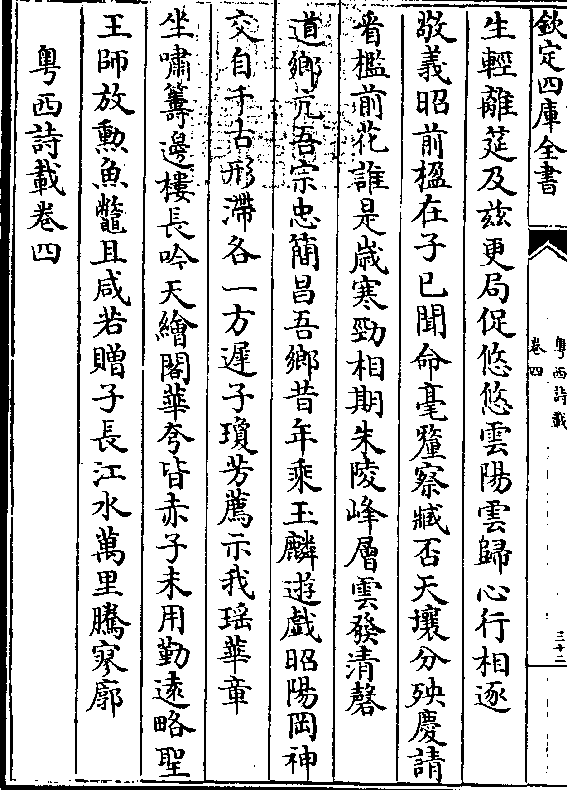 欽定四庫全書
粤西詩載
卷四
三十二
生輕離筵及兹更局促悠悠雲陽雲歸心行相逐
敬義昭前楹在子已聞命毫釐察臧否天壤分殃慶請
看檻前花誰是歲寒勁相期朱陵峰層雲發清磬
道鄉亢吾宗忠簡昌吾鄉昔年乘玉麟遊戲昭陽岡神
交自千古形滯各一方遲子瓊芳薦示我瑶華章
坐嘯籌邊樓長吟天繪閣華夸皆赤子未用勤遠略聖
王師放勳魚鼈且咸若贈子長江水萬里騰寥廓
粤西詩載卷四